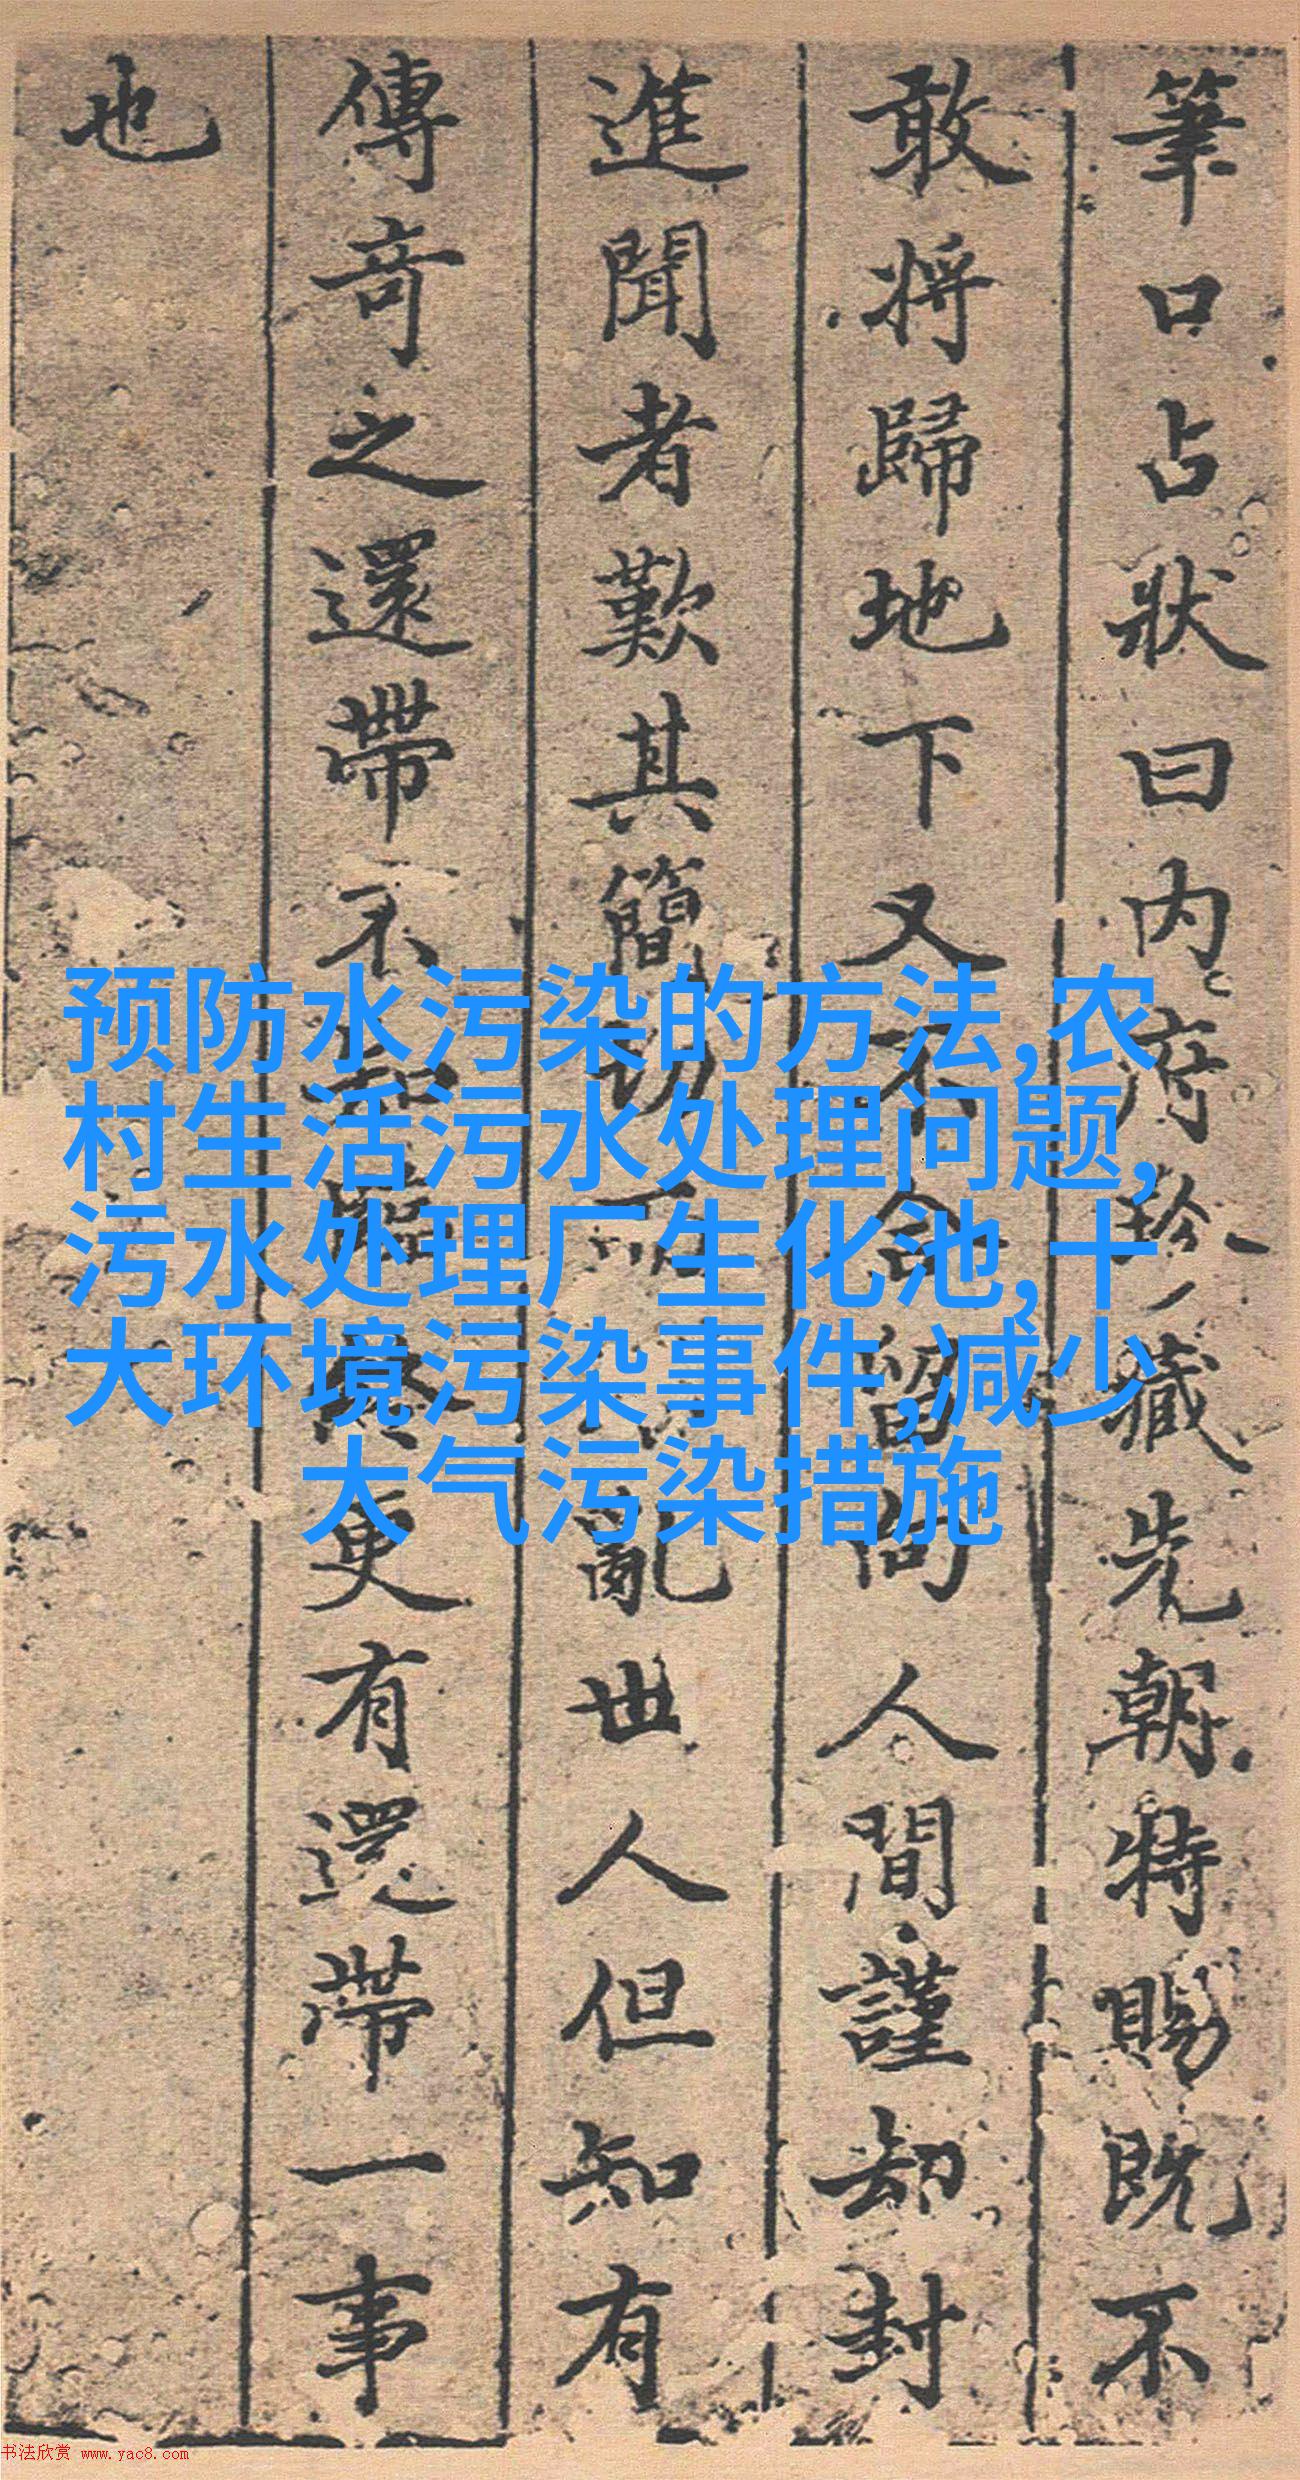 筆口占狀曰内府珍藏先朝特賜既不
敢將歸地下又不令留向人間謹却封
進聞者歎其簡切而亂世人但知有
傳奇之還帶不更有還帶一事
也
预防水污染的方法,农
村生活污水处理问题,
污水处理厂生化池,十
大环境污染事件,减少
大气污染措施
书法欣赏 www.yac8.com